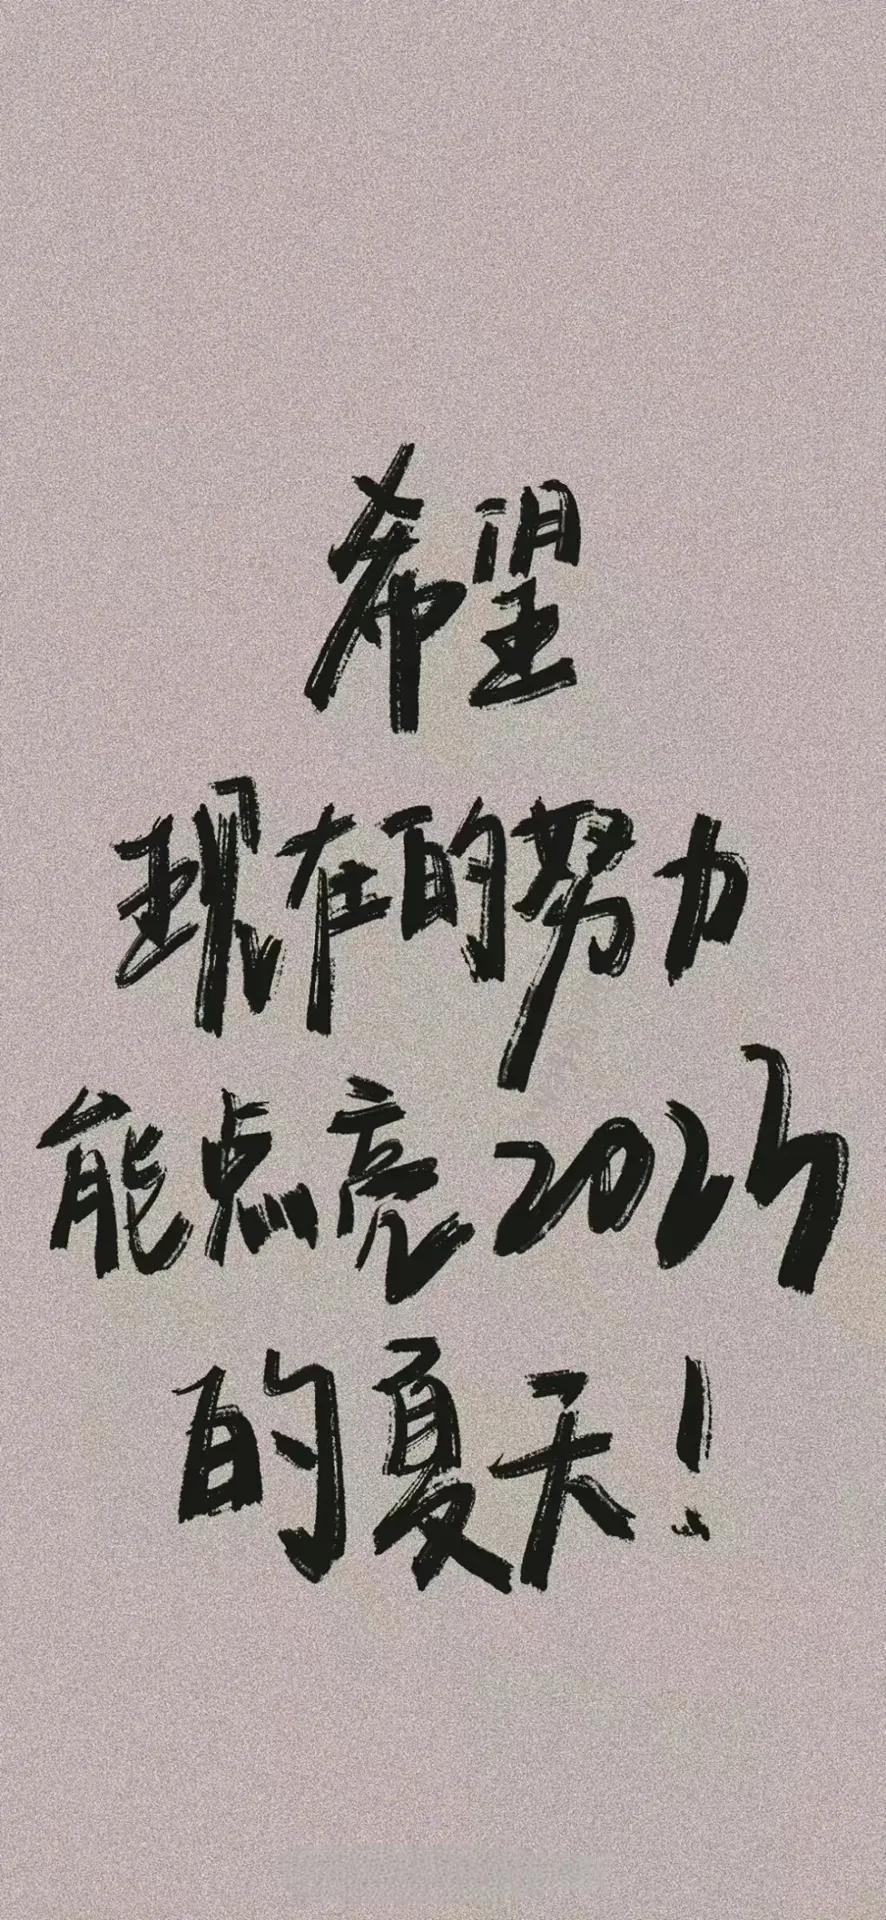 希望
现在的努力
能点亮2023
的夏天！